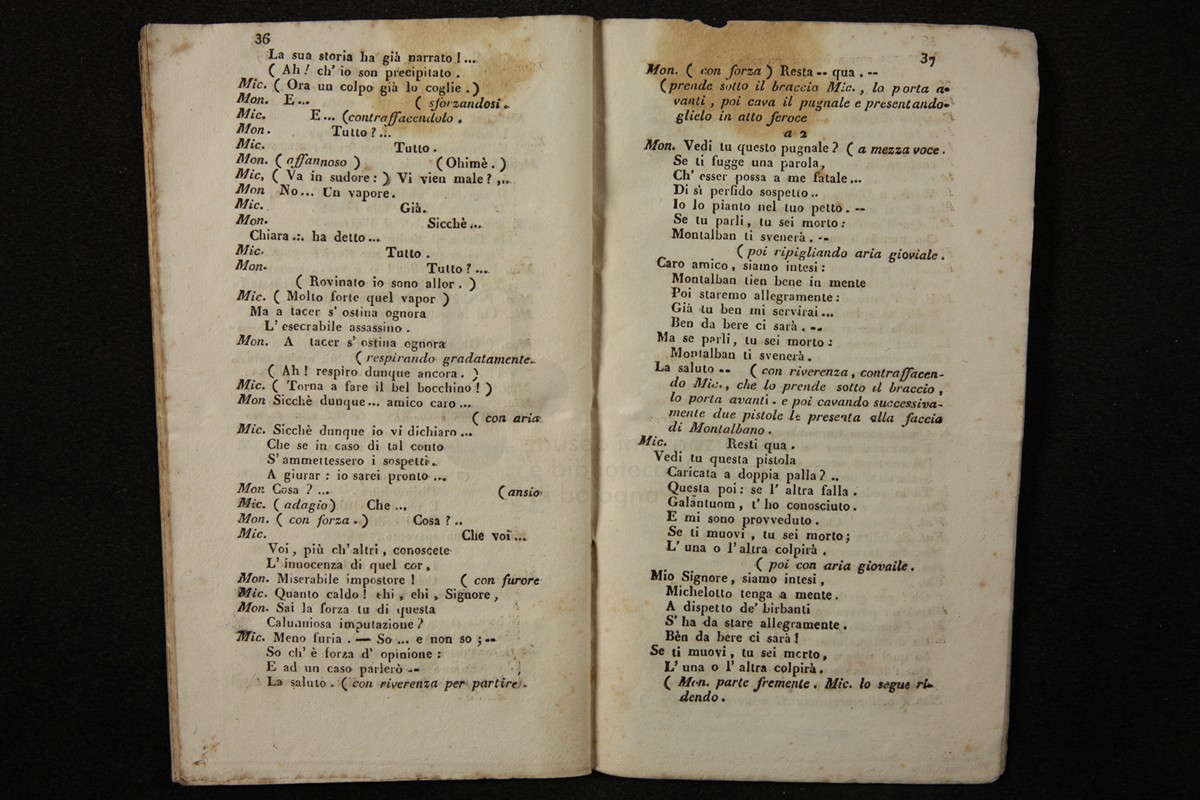 36
La sua storia ha già narrato !...
( Ah ! ch' io son precipitato .
Mic. ( Ora un colpo già lo coglie . )
Mon. E... ( sforzandosi .
Mic. E... (contraffacendolo .
Mon. Tutto ?...
Mic. Tutto .
Mon. ( affannoso ) (Ohimè . )
Mic, ( Va in sudore : ) Vi vien male ? ,...
Mon No... Un vapore.
Mic. Già.
Mon. Sicchè...
Chiara .:. ha detto ...
Mic. Tutto .
Mon. Tutto ? ...
( Rovinato io sono allor . )
Mic. ( Molto forte quel vapor )
Ma a tacer s' ostina ognora
L' esecrabile assassino .
Mon. A tacer s' ostina ognora
( respirando gradatamente.
( Ah ! respiro dunque ancora . )
Mic. ( Torna a fare il bel bocchino ! )
Mon Sicchè dunque ... amico caro ...
( con aria
Mic. Sicchè dunque io vi dichiaro ...
Che se in caso di tal conto
S' ammettessero i sospetti .
A giurar : io sarei pronto ...
Mon. Cosa ? ... ( ansio
Mic. ( adagio ) Che ...
Mon. ( con forza . ) Cosa ? ..
Mic. Che voi ...
Voi , più ch' altri , conoscete
L' innocenza di quel cor ,
Mon. Miserabile impostore ! ( con furore
Mic. Quanto caldo ! ehi , ehi , Signore ,
Mon. Sai la forza tu di questa
Caluniosa imputazione ?
Mic. Meno furia . — So ... e non so ; --
So ch' è forza d' opinione :
E ad un caso parlerò --
La saluto . ( con riverenza per partire .
37
Mon. ( con forza ) Resta -- qua . --
(prende sotto il braccio Mic. , lo porta a-
vanti , poi cava il pugnale e presentando-
glielo in atto feroce
a 2
Mon. Vedi tu questo pugnale ? ( a mezza voce .
Se ti fugge una parola,
Ch' esser possa a me fatale ...
Di sì perfido sospetto ..
Io lo pianto nel tuo petto . --
Se tu parli , tu sei morto :
Montalban ti svenerà . --
( poi ripigliando aria gioviale .
Caro amico , siamo intesi :
Montalban tien bene in mente
Poi staremo allegramente :
Già tu ben mi servirai ...
Ben da bere ci sarà . --
Ma se parli, tu sei morto :
Montalban ti svenerà .
La saluto -- ( con riverenza , contraffacen-
do Mic. , che lo prende sotto il braccio ,
lo porta avanti . e poi cavando successiva-
mente due pistole le presenta alla faccia
di Montalbano .
Mic. Resti qua .
Vedi tu questa pistola
Caricata a doppia palla ? ..
Questa poi : se l' altra falla .
Galantuom , t' ho conosciuto .
E mi sono provveduto .
Se ti muovi , tu sei morto ;
L' una o l' altra colpirà .
( poi con aria giovaile .
Mio Signore , siamo intesi ,
Michelotto tenga a mente .
A dispetto de' birbanti
S' ha da stare allegramente .
Bèn da bere ci sarà !
Se ti muovi , tu sei morto ,
L' una o l' altra colpirà .
( Mon. parte fremente . Mic. lo segue ri-
dendo .